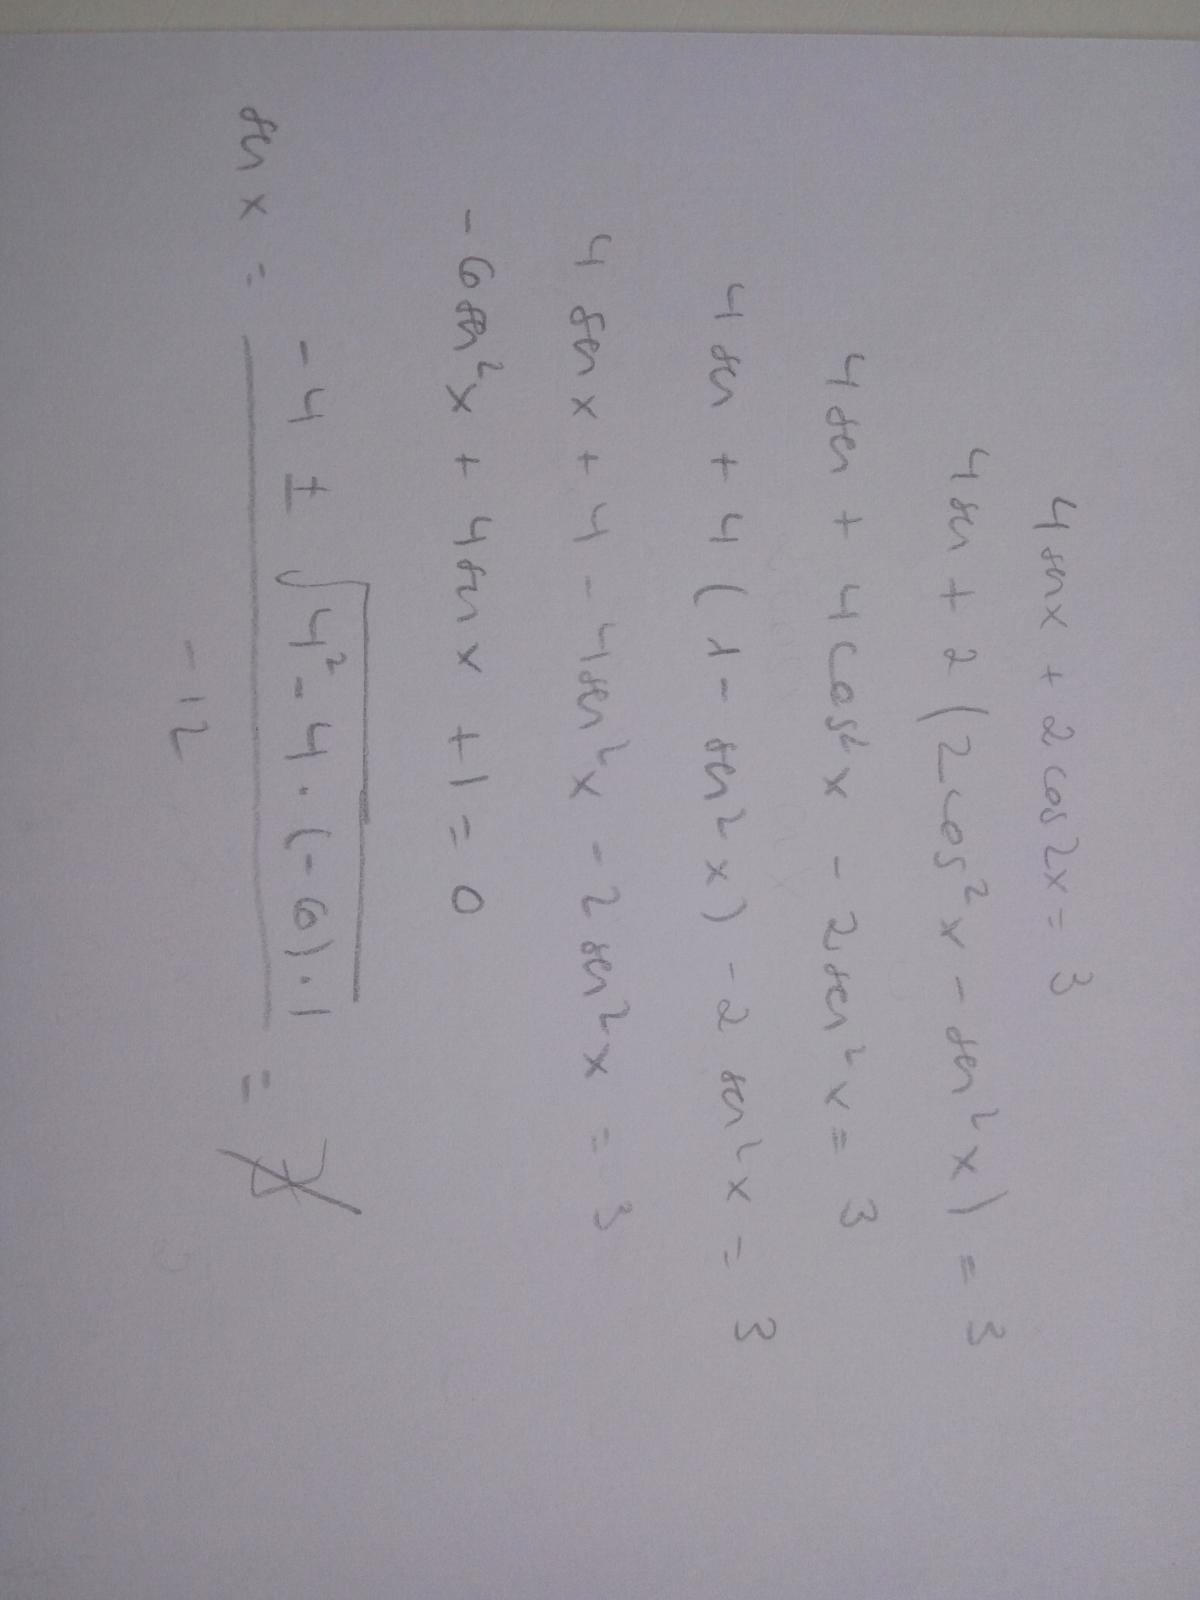 4 senx + 2 cos 2x = 3
4 sen + 2 (2cos²x - sen²x) = 3
4 sen + 4 cos²x - 2 sen²x = 3
4 sen + 4 (1 - sen²x) - 2 sen²x = 3
4 sen x + 4 - 4 sen²x - 2 sen²x = 3
- 6 sen²x + 4 sen x + 1 = 0
sen x = \frac{-4 ± √(4² - 4 · (-6) · 1)}{-12} =